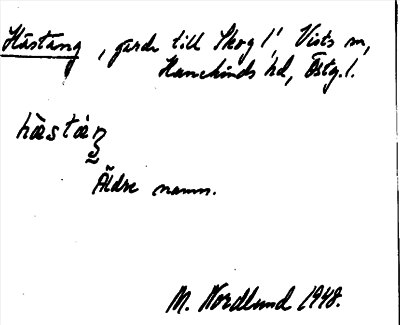 Hästäng, gärde till Skog 1, Vists sn,
Hanekinds hd, Östg. l.
hästäŋ
Äldre namn.
M. Nordlund 1948.